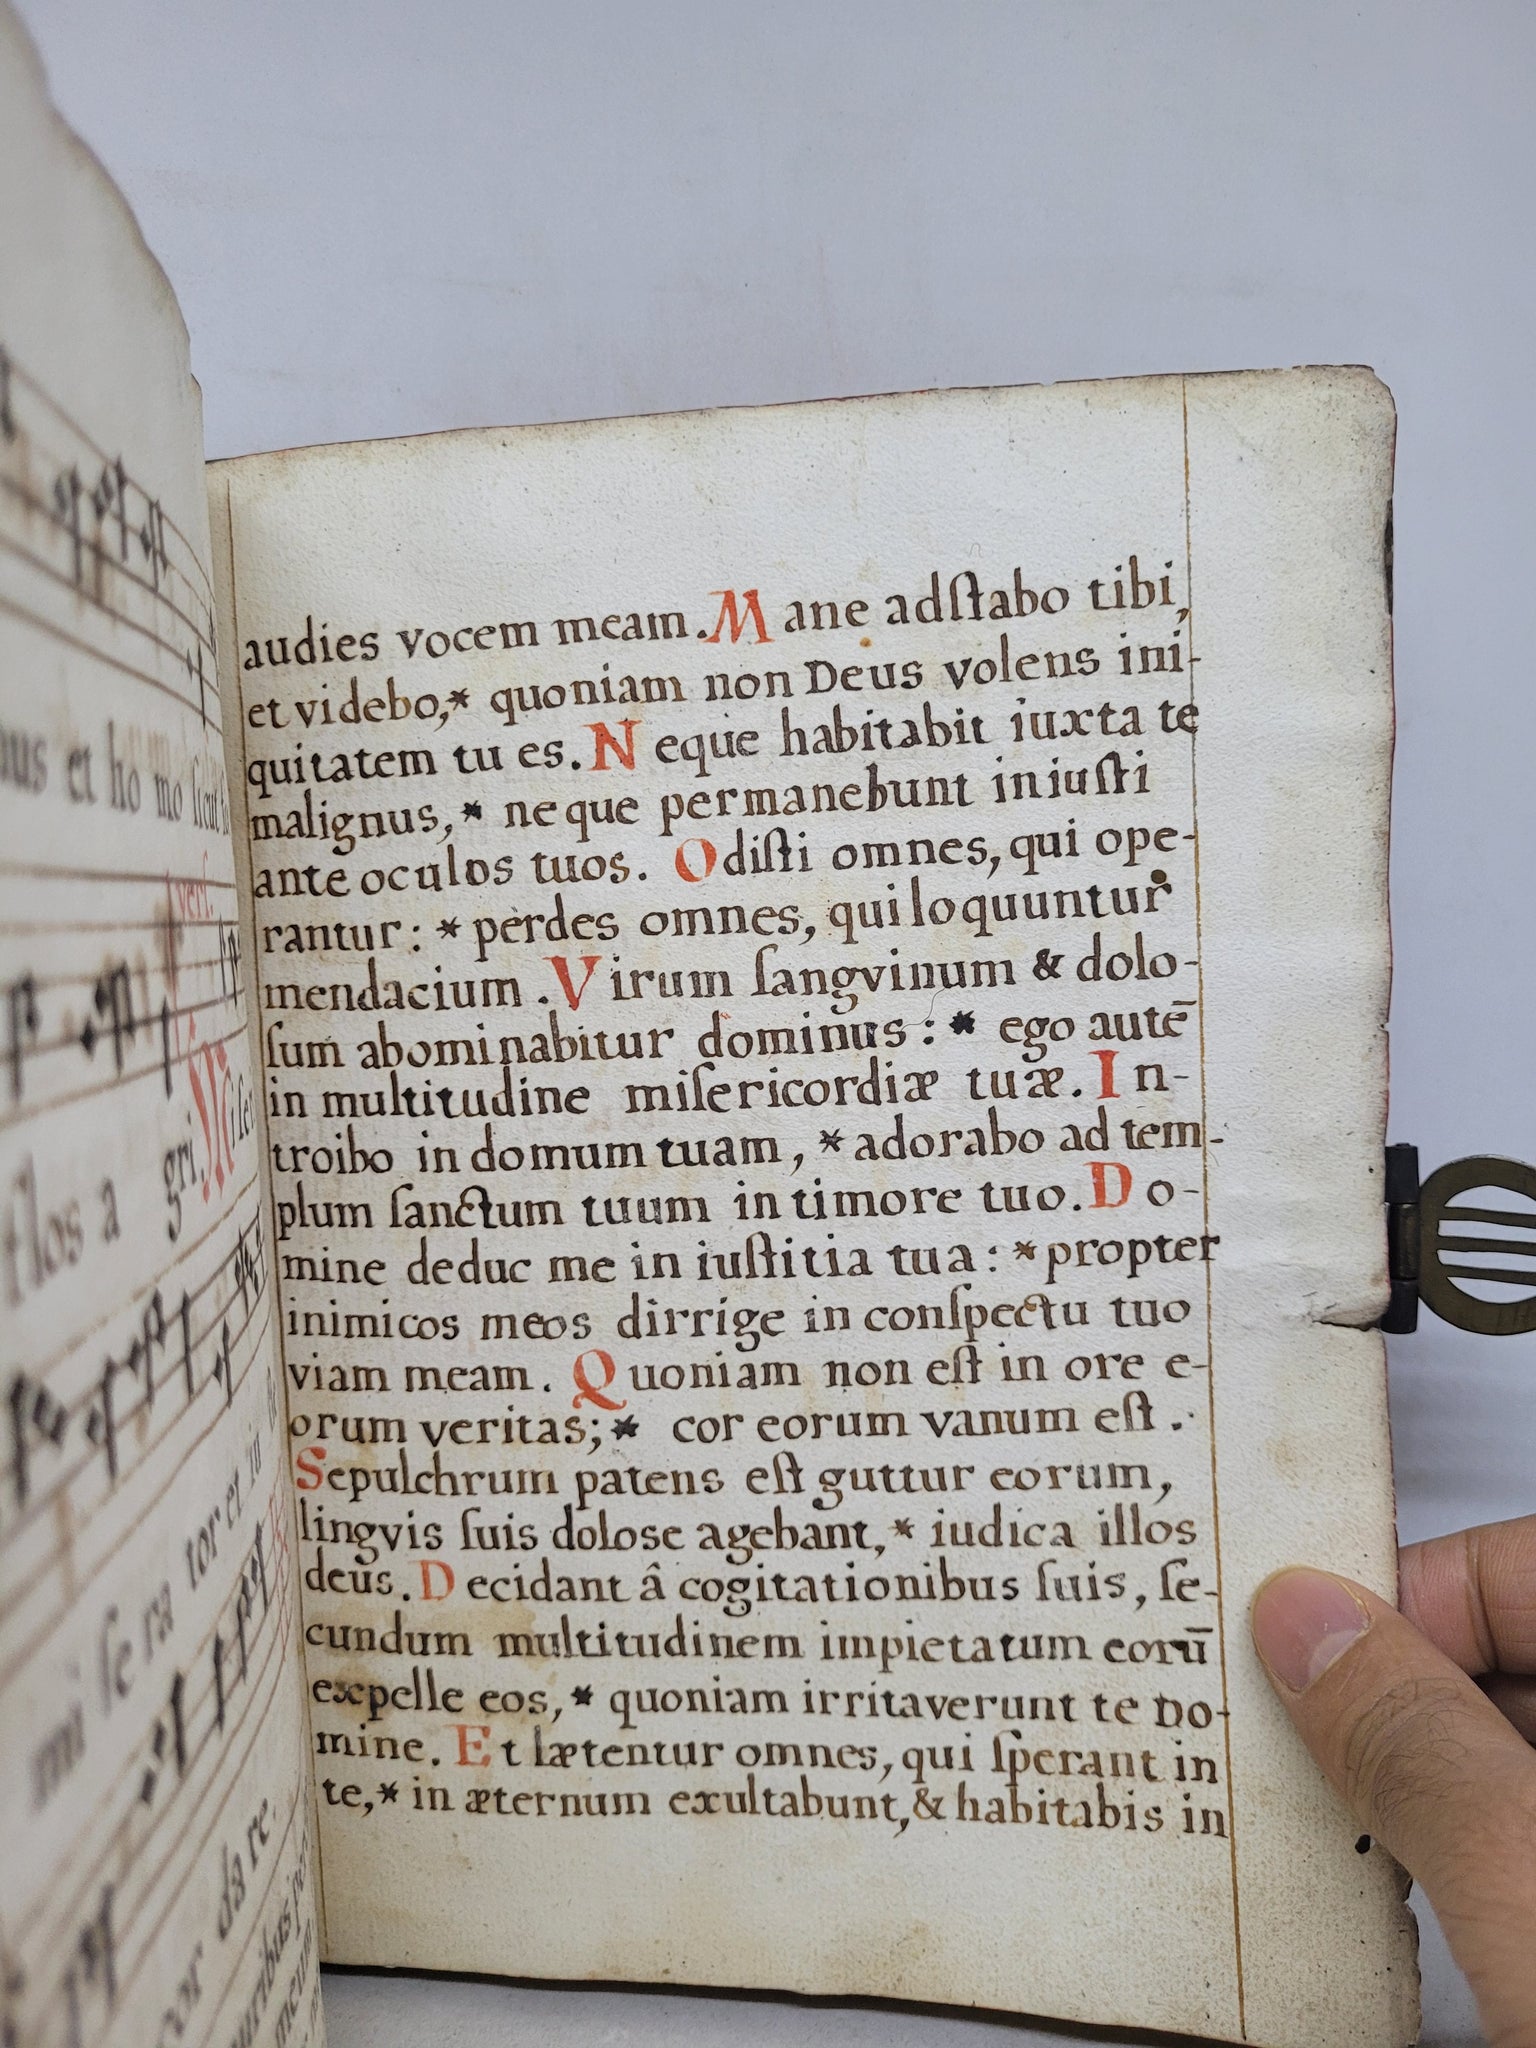 bus et ho mo sicut
vers.
stlos a gri Mise
mi se ra tor et iu
cor da re.
auribus per
meum
audies vocem meam. Mane adſtabo tibi,
et videbo,* quoniam non Deus volens ini-
quitatem tu es. Neque habitabit iuxta te
malignus,* neque permanebunt iniuſti
ante oculos tuos. Odiſti omnes, qui ope-
rantur: * perdes omnes, qui loquuntur
mendacium. Virum ſangvinum & dolo-
ſum abominabitur dominus: * ego autē
in multitudine miſericordiæ tuæ. In-
troibo in domum tuam, * adorabo ad tem-
plum ſanctum tuum in timore tuo. Do-
mine deduc me in iuſtitia tua: * propter
inimicos meos dirrige in conſpectu tuo
viam meam. Quoniam non eſt in ore e-
orum veritas; * cor eorum vanum eſt.
Sepulchrum patens eſt guttur eorum,
lingvis ſuis dolose agebant,* iudica illos
deus. Decidant â cogitationibus ſuis, ſe-
cundum multitudinem impietatum eorū
expelle eos,* quoniam irritaverunt te Do-
mine. Et lætentur omnes, qui ſperant in
te,* in æternum exultabunt, & habitabis in